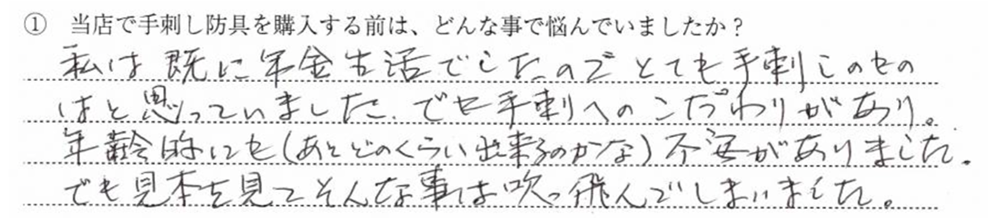 ① 当店で手刺し防具を購入する前は、どんな事で悩んでいましたか？
私は既に年金生活でしたのでとても手刺しのもの
はと思っていました、でも手刺へのこだわりがあり。
年齢的にも(あとどのくらい出来るのかな)不安がありました。
でも見本を見てそんな事は吹っ飛んでしまいました。